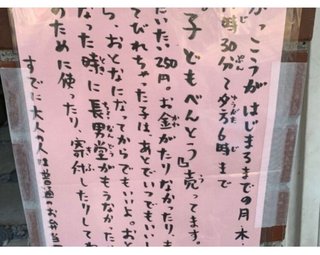 がこうがはじまるまでの月、木、
時30分で夕方6時まで
子どもべんとう』売ってます。
だいたい250円。お金がたりなかったり、ま
てびれちゃった子は、あとでいつでもいいし
ら、おとなになってからでもいいよ。おと
なった時に長男堂がもうなかった
のために使ったり、寄付したりしてね
すでに大人の人は普通のお弁当